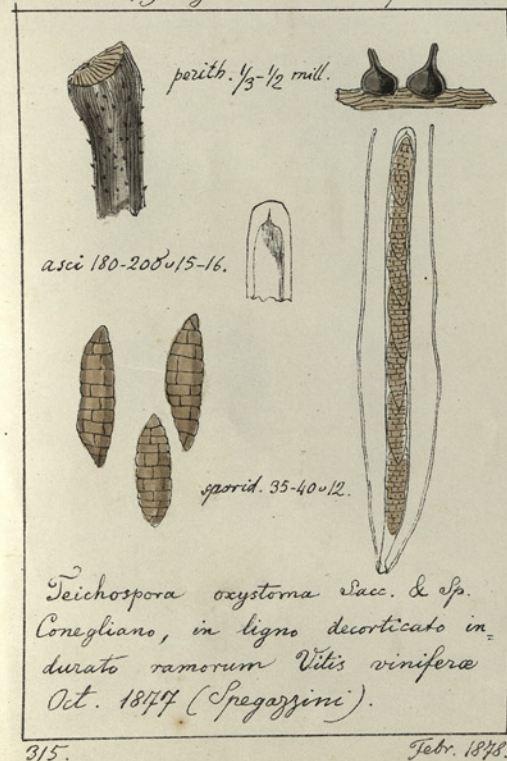 perith. 1/3-1/2 mill.
asci 180-200 ᴗ 15-16.
sporid. 35-40 ᴗ 12.
Teichospora oxystoma Sacc. & Sp.
Conegliano, in ligno decorticato in=
durato ramorum Vitis viniferæ
Oct. 1877 (Spegazzini).
315.
Febr. 1878.